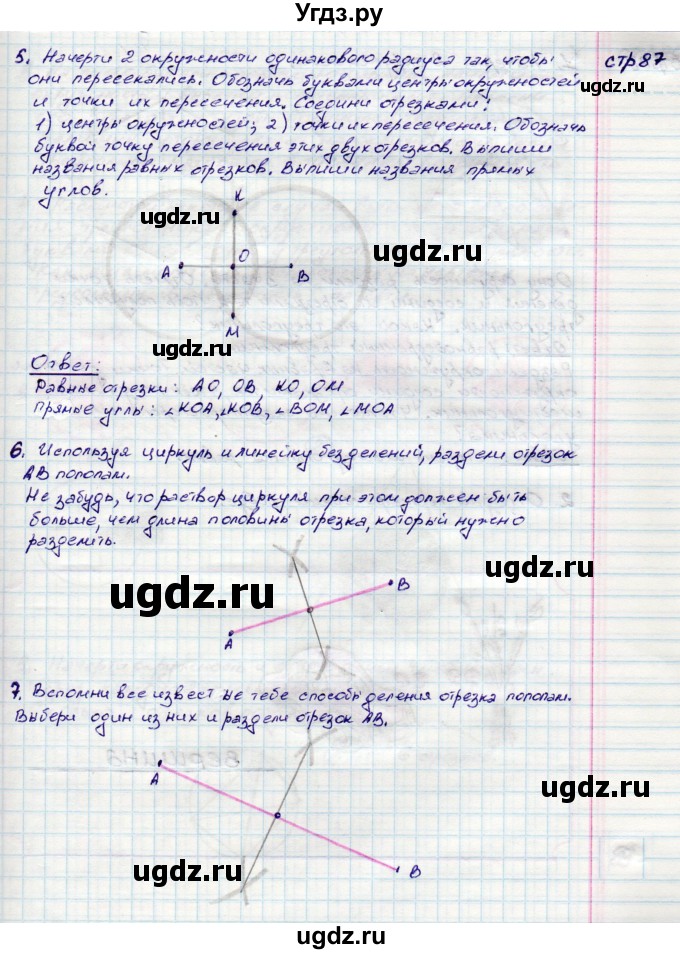 Угдз.ру
стр 87
5. Начерти 2 окружности одинакового радиуса так, чтобы
они пересекались. Обозначь буквами центры окружностей
и точки их пересечения. Соедини отрезками:
1) центры окружностей; 2) точки их пересечения. Обозначь
буквой точку пересечения этих двух отрезков. Выпиши
названия равных отрезков. Выпиши названия прямых
углов.
K
ugdz.ru
ugdz.ru
ugdz.ru
O
A
B
M
ugdz.ru
ugdz.ru
Ответ:
Равные отрезки: AO, OB, KO, OM
Прямые углы: ∠KOA, ∠KOB, ∠BOM, ∠MOA
6. Используя циркуль и линейку без делений, раздели отрезок
AB пополам.
Не забудь, что раствор циркуля при этом должен быть
больше, чем длина половины отрезка, который нужно
разделить.
ugdz.ru
ugdz.ru
B
A
7. Вспомни все извест ые тебе способы деления отрезка пополам.
Выбери один из них и раздели отрезок AB.
A
ugdz.ru
B
ugdz.ru
ugdz.ru
ugdz.ru